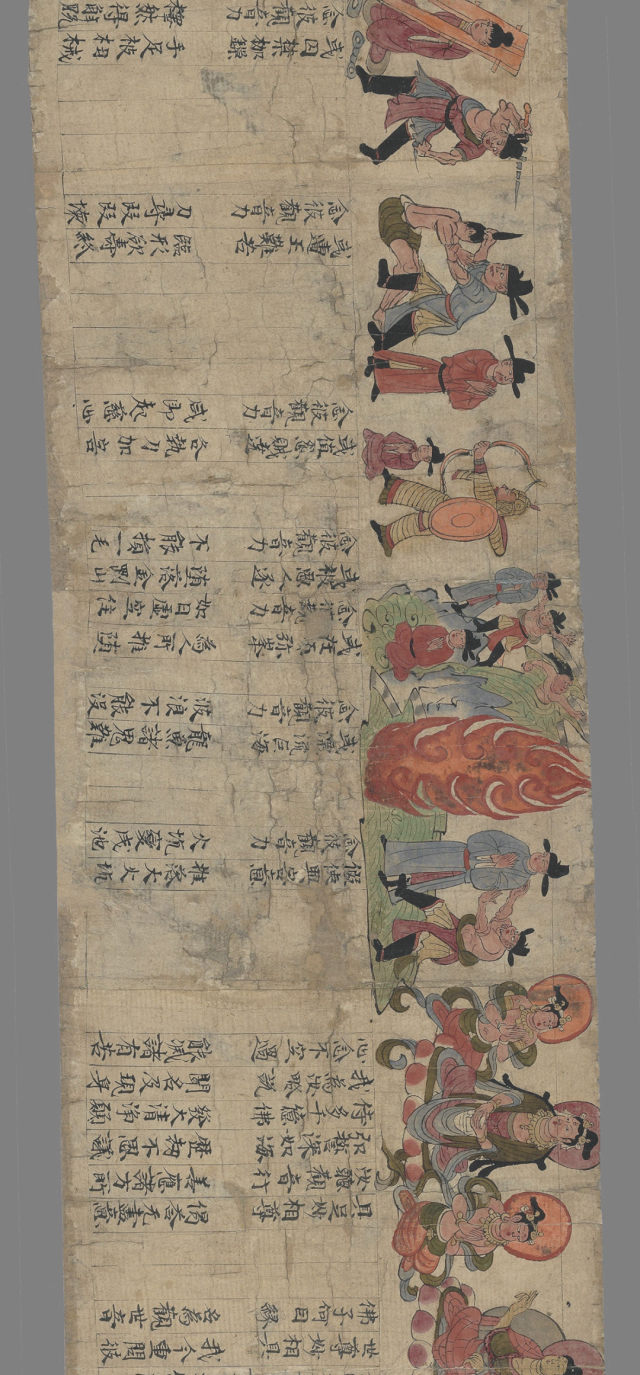 世尊妙相具 我今重問彼
佛子何因緣 名為觀世音
具足妙相尊 偈荅无盡意
汝聽觀音行 善應諸方所
弘誓深如海 歷劫不思議
侍多千億佛 發大清淨願
我為汝略說 聞名及現身
心念不空過 能滅諸有苦
假使興害意 推落大火坑
念彼觀音力 火坑變成池
或漂流巨海 龍魚諸鬼難
念彼觀音力 波浪不能沒
或在須弥峯 為人所推墮
念彼觀音力 如日虛空住
或被惡人逐 墮落金剛山
念彼觀音力 不能損一毛
或值怨賊遶 各執刀加害
念彼觀音力 咸即起慈心
或遭王難苦 臨形欲壽終
念彼觀音力 刀尋段段壞
或囚禁枷鎖 手足被杻械
念彼觀音力 釋然得解脫